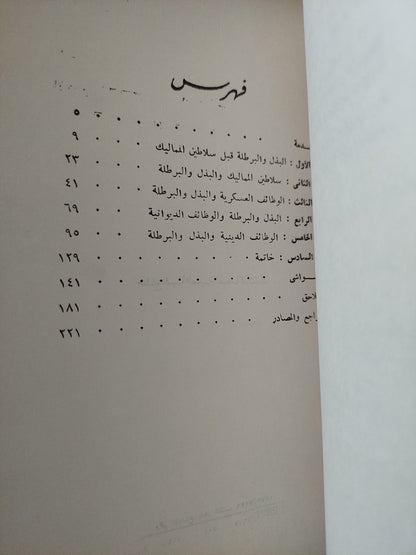 فهرس
ـدمة . . . . . . . . . . ٥
الأول : البذل والبرطلة قبل سلاطين المماليك . . ٩
الثانى : سلاطين المماليك والبذل والبرطلة . . ٢٣
الثالث : الوظائف العسكرية والبذل والبرطلة . . ٤١
الرابع : البذل والبرطلة والوظائف الديوانية . . ٦٩
الخامس : الوظائف الدينية والبذل والبرطلة . . ٩٥
السادس : خاتمة . . . . . . . . . ١٣٩
ـواشى . . . . . . . . . ١٤١
ـلاحق . . . . . . . . . ١٨١
ـراجع والمصادر . . . . . . . . . ٢٢١